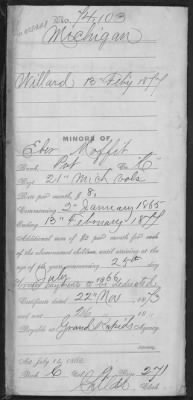 No. 74,103
Michigan
Willard 13" Feby 1879
MINORS OF
Eber Moffit
Rank, Pvt Co. "K"
Regt. 21" Mich Vols
Rate per month, $ 8.
Commencing 2" January 1865
Ending 13" February 1879
Additional sum of $2 per month for each
of the abovenamed children until arriving at the
age of 16 years, commencing 25th
of July 1866,
Certificate dated 22" Nov
and sent 26
Payable at Grand Rapids Agency
Act July 12, 1862
Book C Vol. 9 Page 271
Clerk